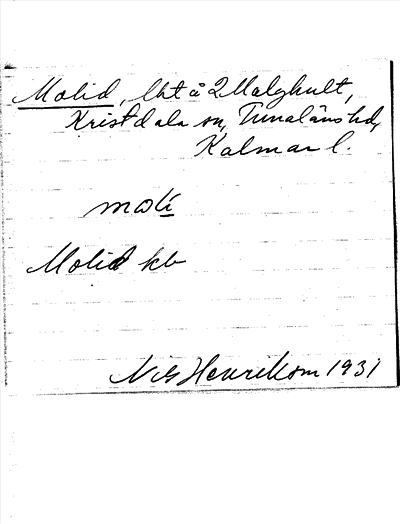 Molid, lht å 2 Malghult,
Kristdala sn, Tunaläns hd,
Kalmar l.
molí
Molid kb
Nils Henrikson 1931